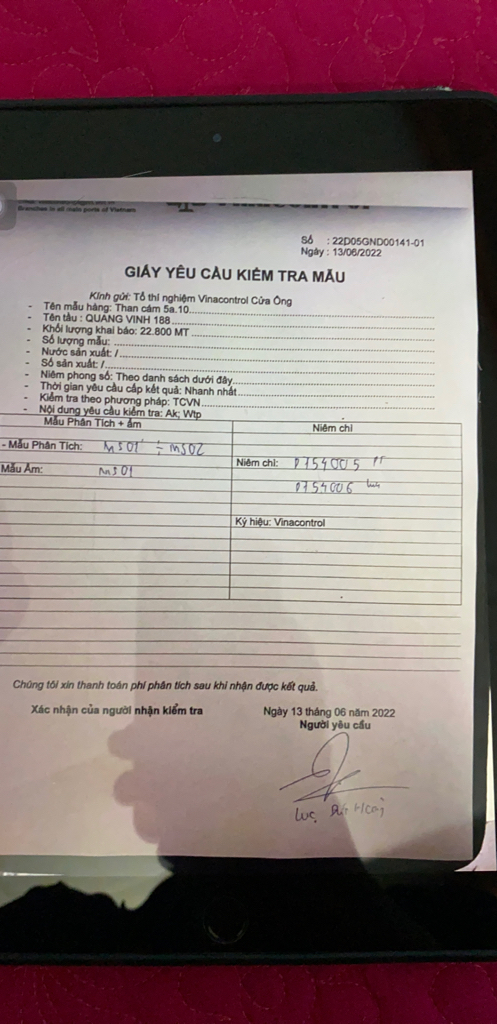 Branches in all main ports of Vietnam
Số : 22D05GND00141-01
Ngày : 13/06/2022
GIẤY YÊU CẦU KIỂM TRA MẪU
Kính gửi: Tổ thí nghiệm Vinacontrol Cửa Ông
- Tên mẫu hàng: Than cám 5a.10
- Tên tầu : QUANG VINH 188
- Khối lượng khai báo: 22.800 MT
- Số lượng mẫu:
- Nước sản xuất: /
- Số sản xuất: /
- Niêm phong số: Theo danh sách dưới đây
- Thời gian yêu cầu cấp kết quả: Nhanh nhất
- Kiểm tra theo phương pháp: TCVN
- Nội dung yêu cầu kiểm tra: Ak; Wtp
Mẫu Phân Tích + ẩm
Niêm chì
- Mẫu Phân Tích: MS01 ÷ MS02
Niêm chì: 0754005 PT
Mẫu Ẩm: MS01
0754006
Ký hiệu: Vinacontrol
Chúng tôi xin thanh toán phí phân tích sau khi nhận được kết quả.
Xác nhận của người nhận kiểm tra
Ngày 13 tháng 06 năm 2022
Người yêu cầu